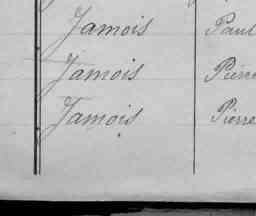 Jamois Paul
Jamois Pierre
Jamois Pierre